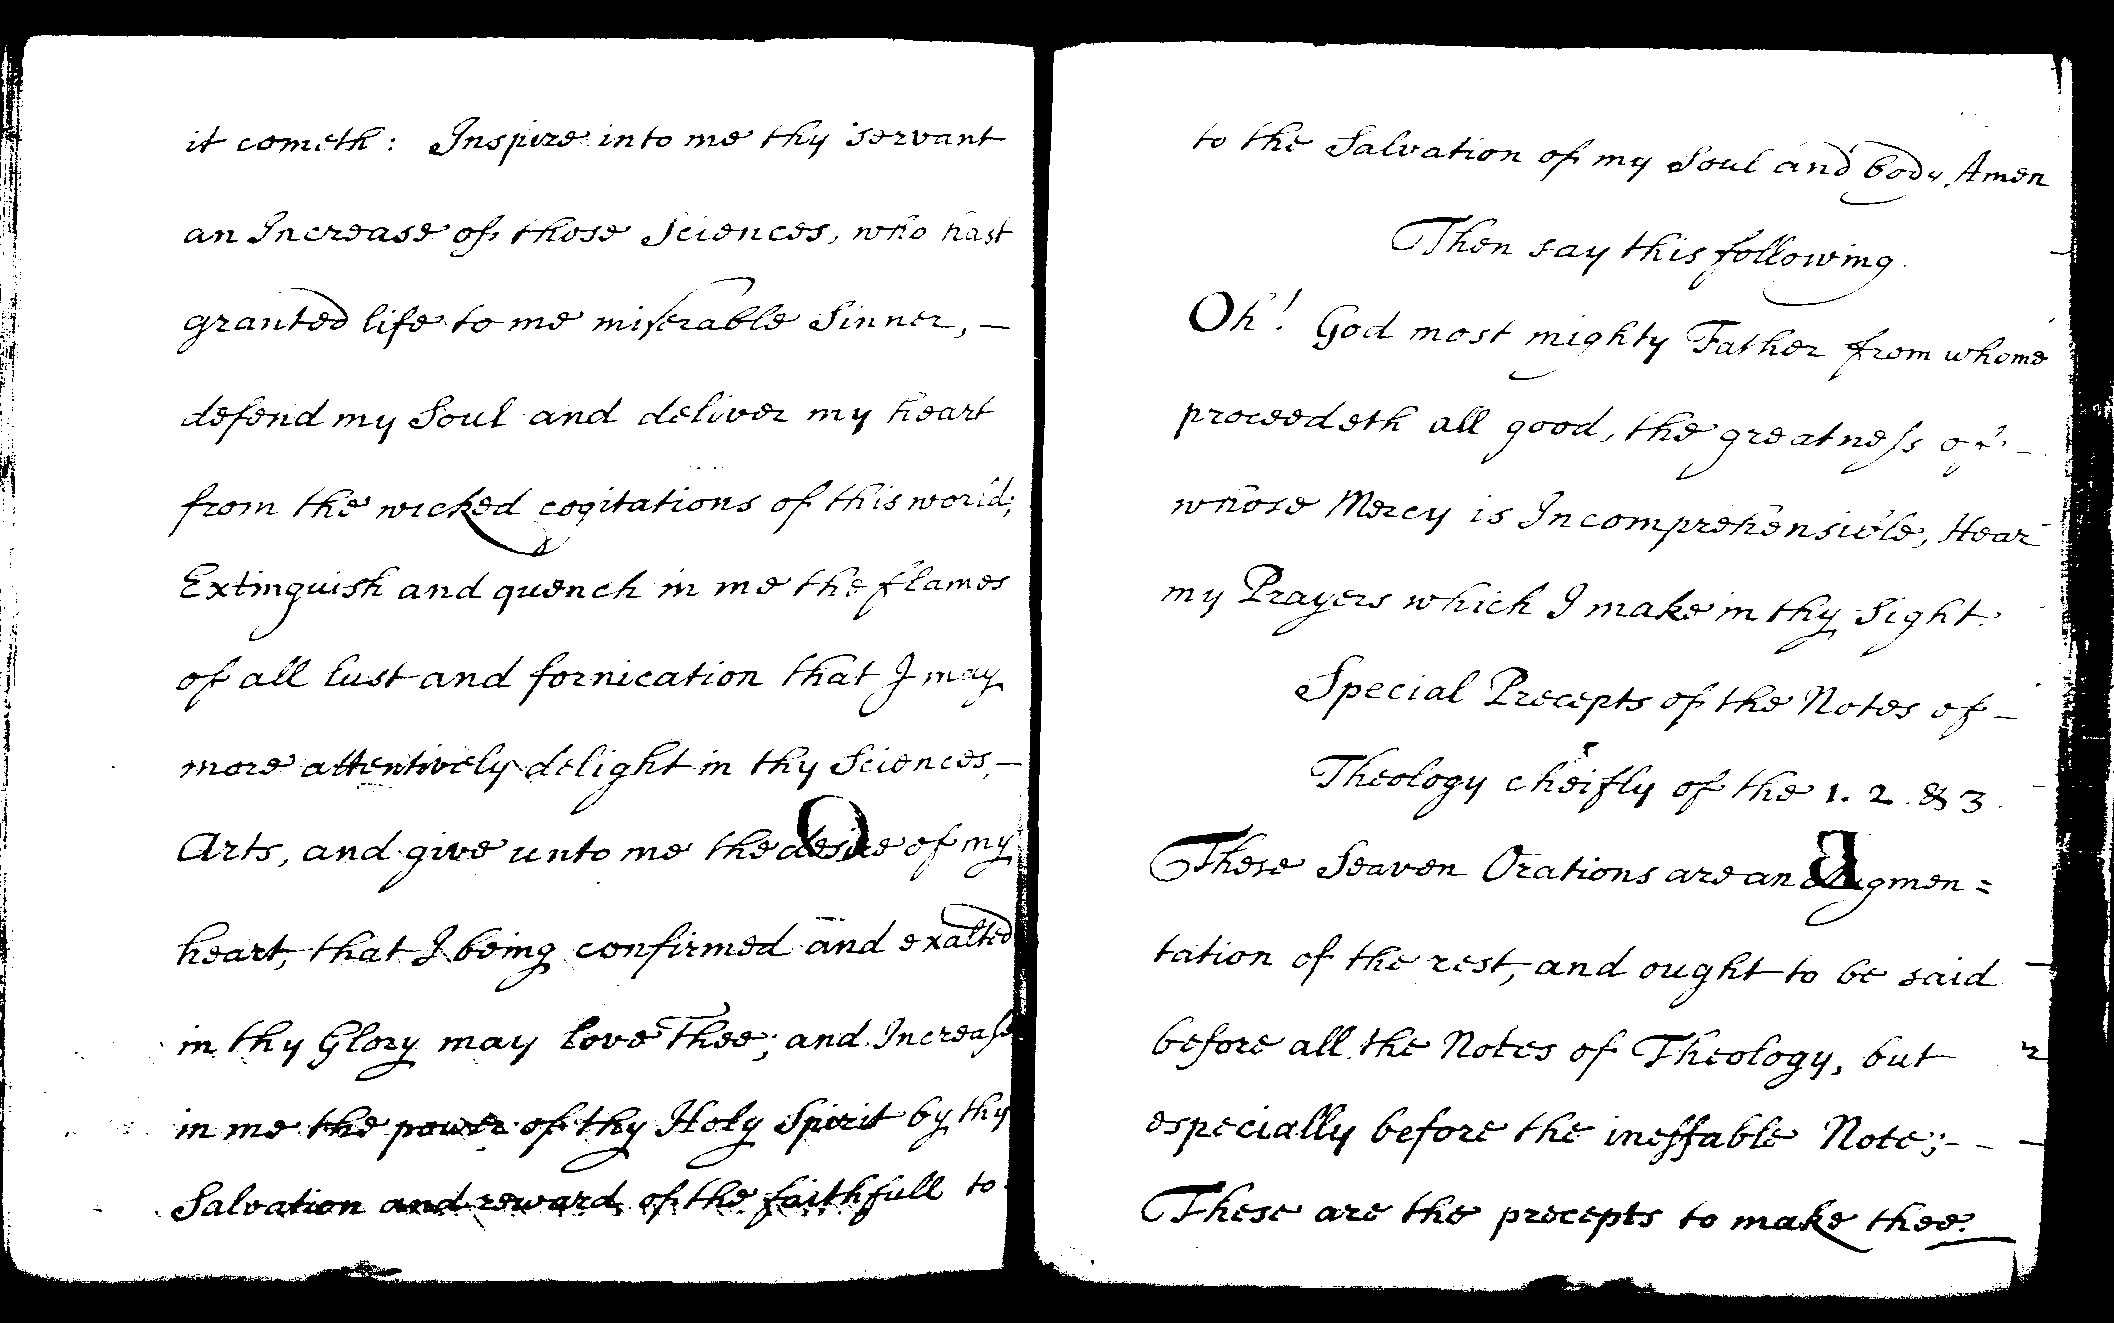 it cometh: Inspire into me thy servant
an Increase of those Sciences, who hast
granted life to me miserable Sinner, –
defend my Soul and deliver my heart
from the wicked cogitations of this world;
Extinguish and quench in me the flames
of all lust and fornication that I may
more attentively delight in thy Sciences, –
Arts, and give unto me the desire of my
heart, that I being confirmed and exalted
in thy Glory may love Thee; and Increase
in me the power of thy Holy Spirit by thy
Salvation and reward of the faithfull to
to the Salvation of my Soul and body, Amen
Then say this following.
Oh! God most mighty Father from whome
proceedeth all good, the greatness of –
whose Mercy is Incomprehensible, Hear
my Prayers which I make in thy Sight.
Special Precepts of the Notes of –
Theology cheifly of the 1. 2. & 3.
These Seaven Orations are an augmen=
tation of the rest, and ought to be said
before all the Notes of Theology, but
especially before the ineffable Note; - -
These are the precepts to make thee.